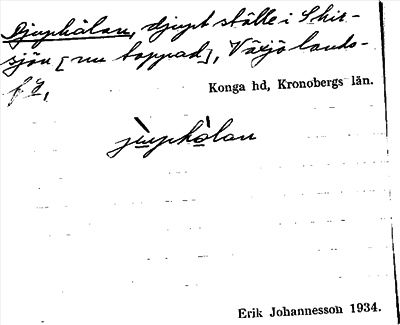 Djuphålan, djupt ställe i Skir-
sjön [nu tappad], Växjö lands-
Konga hd, Kronobergs län.
jùphå̀lan
Erik Johannesson 1934.